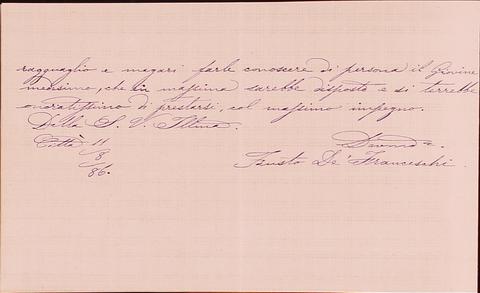 ragguaglio e magari farle conoscere di persona il Giovine
medesimo, che in massima sarebbe disposto e si terrebbe
onoratissimo di prestarsi, col massimo impegno.
Della S. V. Illma.
Città 11
/8
/86.
Fausto De' Franceschi.